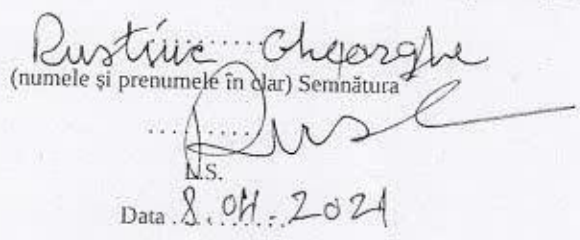 Rustiuc Gheorghe
(numele și prenumele în clar) Semnătura
..........
L.S.
Data 8.04.2021